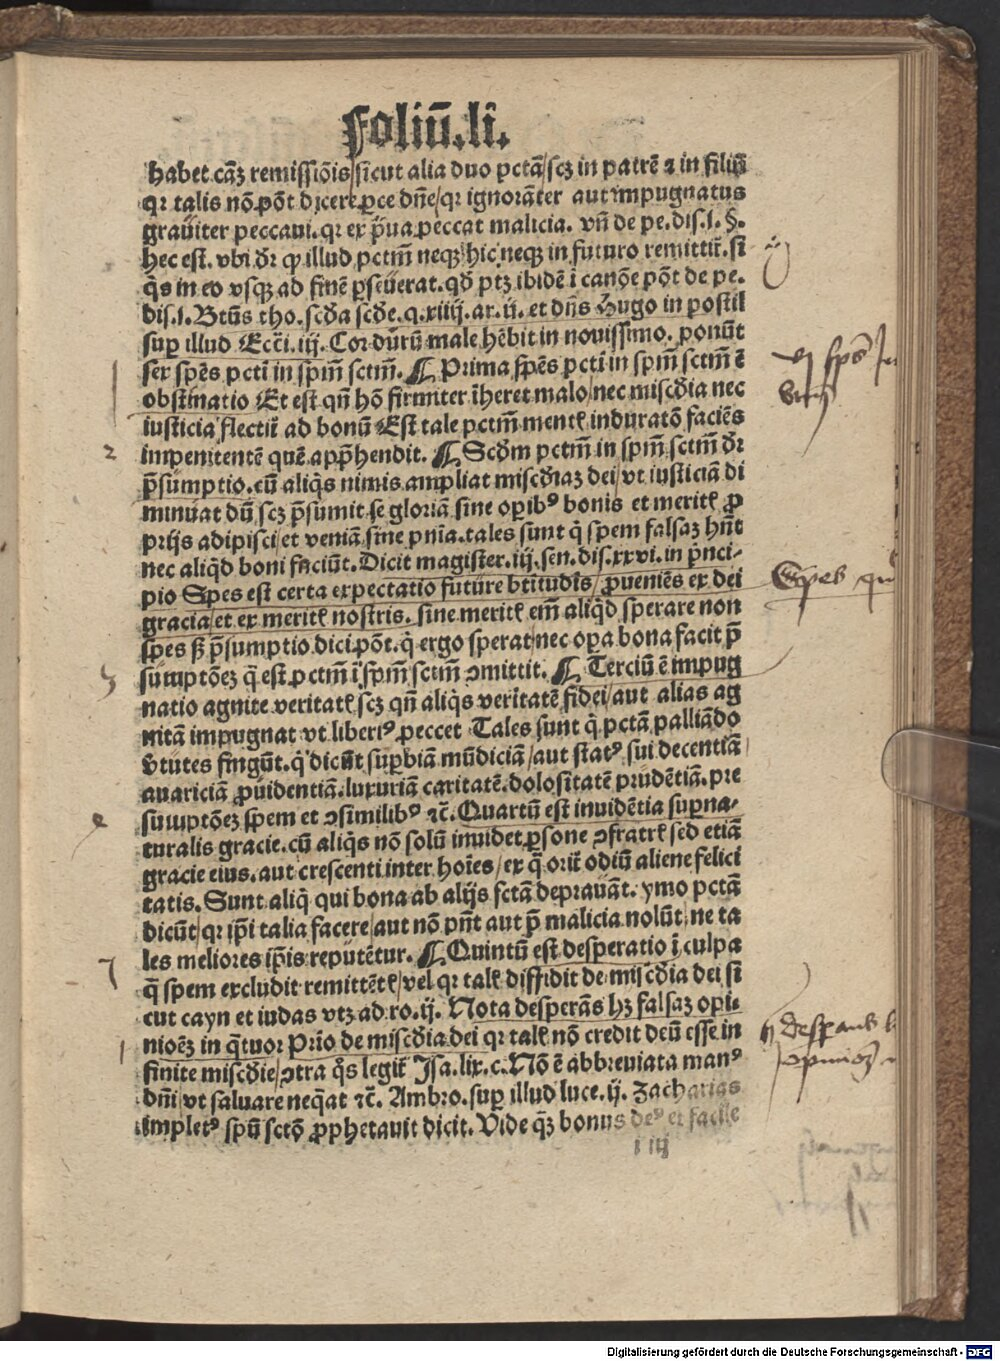 Foliū.li.
habet cāʒ remissiōis/sicut alia duo pctā/scʒ in patrē ⁊ in filiū
qꝛ talis nō pōt dicere ꝑce dn̄e/qꝛ ignorāter aut impugnatus
grauiter peccaui. qꝛ ex ꝓpria peccat malicia. vn̄ de pe. dis. i. §.
hec est. vbi dꝛ ꝙ illud pctm̄ neqꝫ hic neqꝫ in futuro remittit̄. si
q̇s in eo vsqꝫ ad finē ꝑseuerat. qd̄ ptꝫ ibidē i canōe pōt de pe.
dis. i. Btūs tho. scd̄a scd̄e. q. xiiij. ar. ij. et dn̄s Hugo in postil
suꝑ illud Ecci. iij. Cor durū male hēbit in nouissimo. ponūt
sex spēs pcti in spm̄ sctm̄. ¶ Prima spēs pcti in spm̄ sctm̄ ē
obstinatio Et est qn̄ hō firmiter īheret malo/nec misc̄dia nec
iusticia flectit̄ ad bonū Est tale pctm̄ mentꝭ induratō faciēs
impenitentē quē app̄hendit. ¶ Scd̄m pctm̄ in spm̄ sctm̄ dꝛ
p̄sumptio. cū aliq̇s nimis ampliat misc̄diaꝫ dei/vt iusticiā di
minuat dū scꝫ p̄sumit se gloriā sine oꝑibꝰ bonis et meritꝭ ꝓ
prijs adipisci/et veniā sine pn̄ia. tales sunt q̇ spem falsaꝫ hn̄t
nec aliqd̄ boni faciūt. Dicit magister. iij. sen. dis. xxvi. in pꝛinci-
pio Spes est certa expectatio future btītudīs/ꝓueniēs ex dei
gracia/et ex meritꝭ nostris. sine meritꝭ em̄ aliqd̄ sperare non
spes sꝫ p̄sumptio dici pōt. q̇ ergo sperat/nec oꝑa bona facit p̄
sumptōeꝫ q̄ est pctm̄ ī spm̄ sctm̄ ꝯmittit. ¶ Terciū ē impug
natio agnite veritatꝭ scꝫ qn̄ aliq̇s veritatē fidei/aut alias ag
nitā impugnat vt liberiꝰ peccet Tales sunt q̇ pctā palliādo
vtutes fingūt. q̇ dicūt suꝑbiā mūdiciā/aut statꝰ sui decentiā
auariciā ꝓuidentiā. luxuriā caritatē. dolositatē prudētiā. pre
sumptōeꝫ spem et ꝯsimilibꝰ ⁊c̄. Quartū est inuidētia suꝑna-
turalis gracie. cū aliq̇s nō solū inuidet ꝑsone ꝯfratrꝭ sed etiā
gracie eius. aut crescenti inter hoīes/ex q̄ orit̄ odiū aliene felici
tatis. Sunt aliq̇ qui bona ab alijs fctā deprauāt. ymo pctā
dicūt/qꝛ ip̄i talia facere/aut nō pn̄t aut p̄ malicia nolūt/ne ta
les meliores ip̄is reputētur. ¶ Quintū est desperatio ī culpa
q̄ spem excludit remittētꝭ/vel qꝛ talꝭ diffidit de misc̄dia dei si
cut cayn et iudas vtꝫ ad ro. ij. Nota desperās hꝫ falsaꝫ opi-
nioēꝫ in q̄tuor Prīo de misc̄dia dei qꝛ talꝭ nō credit deū esse in
finite misc̄die/ꝯtra q̊s legit̄ Isa. lix. c. Nō ē abbreuiata manꝰ
dn̄i/vt saluare neq̄at ⁊c̄. Ambro. suꝑ illud luce. ij. Zacharias
impletꝰ spū sctō ꝓphetauit dicit. Vide q̄ꝫ bonus deꝰ et facile
i iij
Digitalisierung gefördert durch die Deutsche Forschungsgemeinschaft - DFG